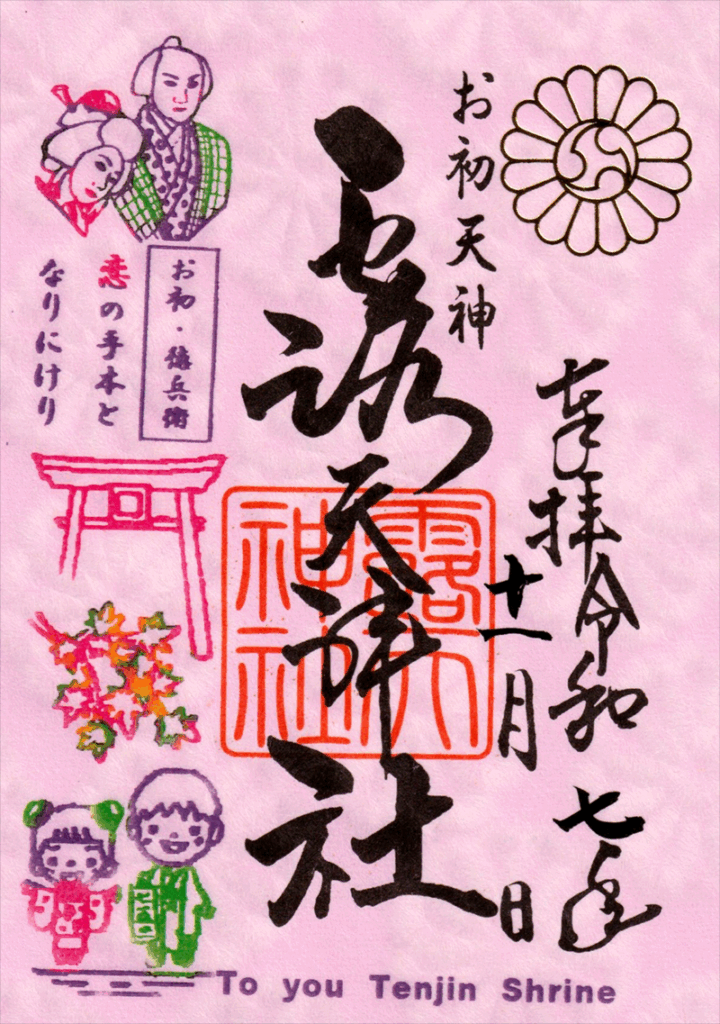 お初天神
奉拝
令和七年
十一月 日
露天神社
露天
神社
お初・徳兵衛
恋の手本と
なりにけり
To you Tenjin Shrine